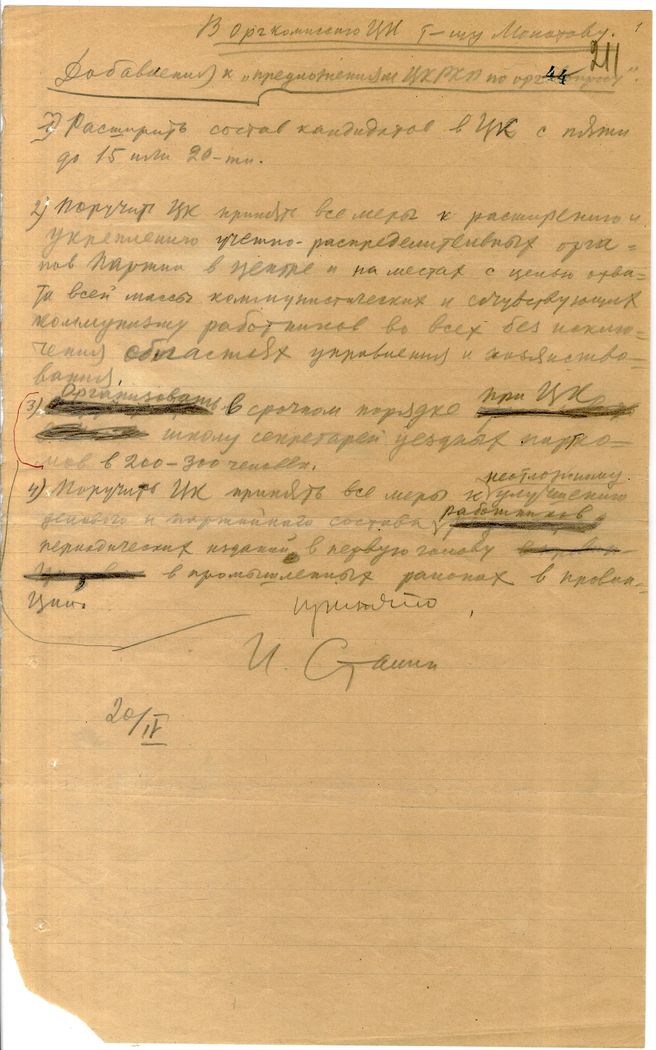 В оргкомиссию ЦК т-щу Молотову.
1
211
Добавления к „предложениям ЦКРКП по орг
44
1) Расширить состав кандидатов в ЦК с пяти
до 15 или 20-ти.
2) Поручить ЦК принять все меры к расширению и
укреплению учетно-распределительных орга-
нов партии в центре и на местах с целью охва-
та всей массы коммунистических и сочувствующих
коммунизму работников во всех без исклю-
чения областях управления и хозяйство-
вания.
3) Организовать в срочном порядке при ЦК
школу секретарей уездных парко-
мов в 200-300 человек.
4) Поручить ЦК принять все меры к неотложному улучшению
делового и партийного состава работников
периодических изданий, в первую голову
в промышленных районах в провин-
ции.
принято
И. Сталин
20/IV